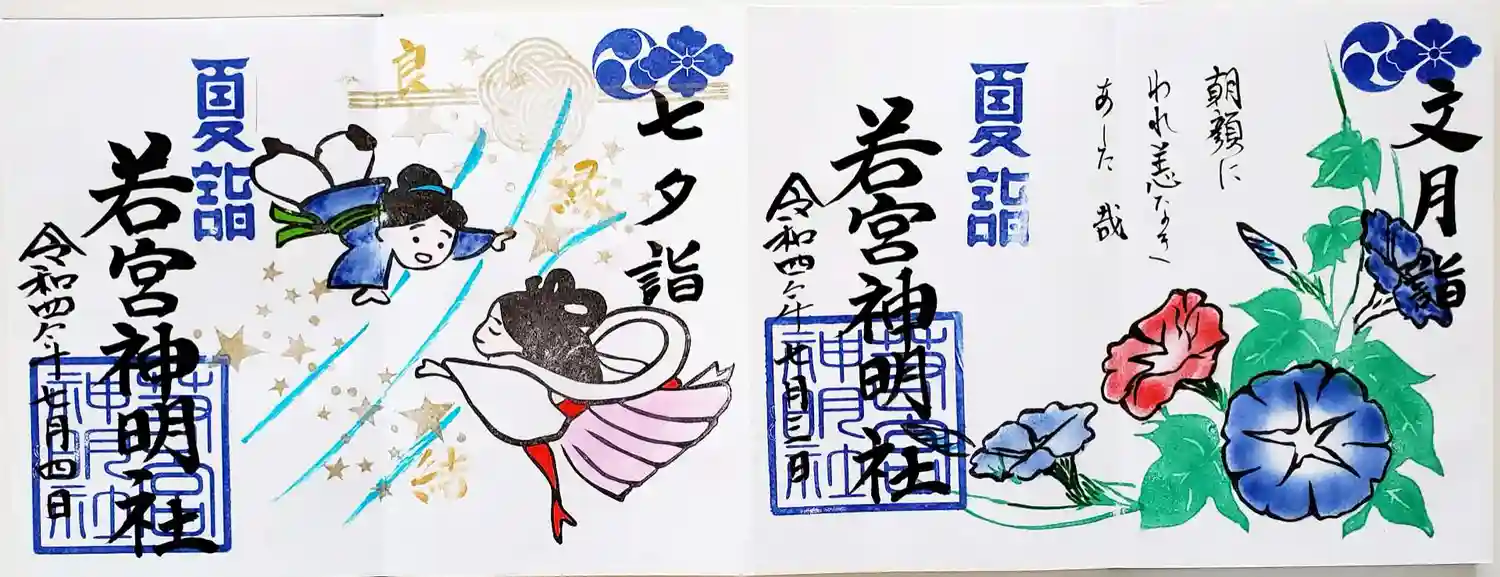 文月詣
朝顔に
われ恙なき
あした哉
夏詣
若宮神明社
令和四年七月三日
若宮
神明社
七夕詣
良
縁
結
夏詣
若宮神明社
令和四年七月四日
若宮
神明社